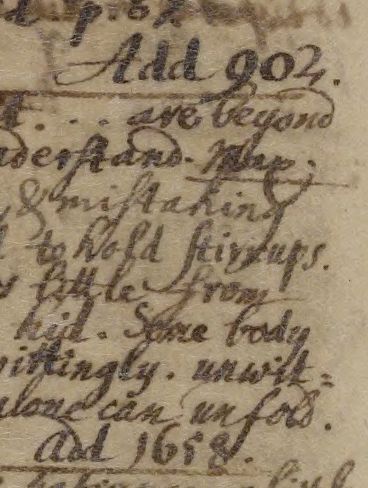 p. 82
Add 902.
t. ... are beyond
derstand. Man;
, & mistaking
to hold stirrups.
little from
hid. Some body
wittingly. unwit=
alone can unfold.
Add 1658.